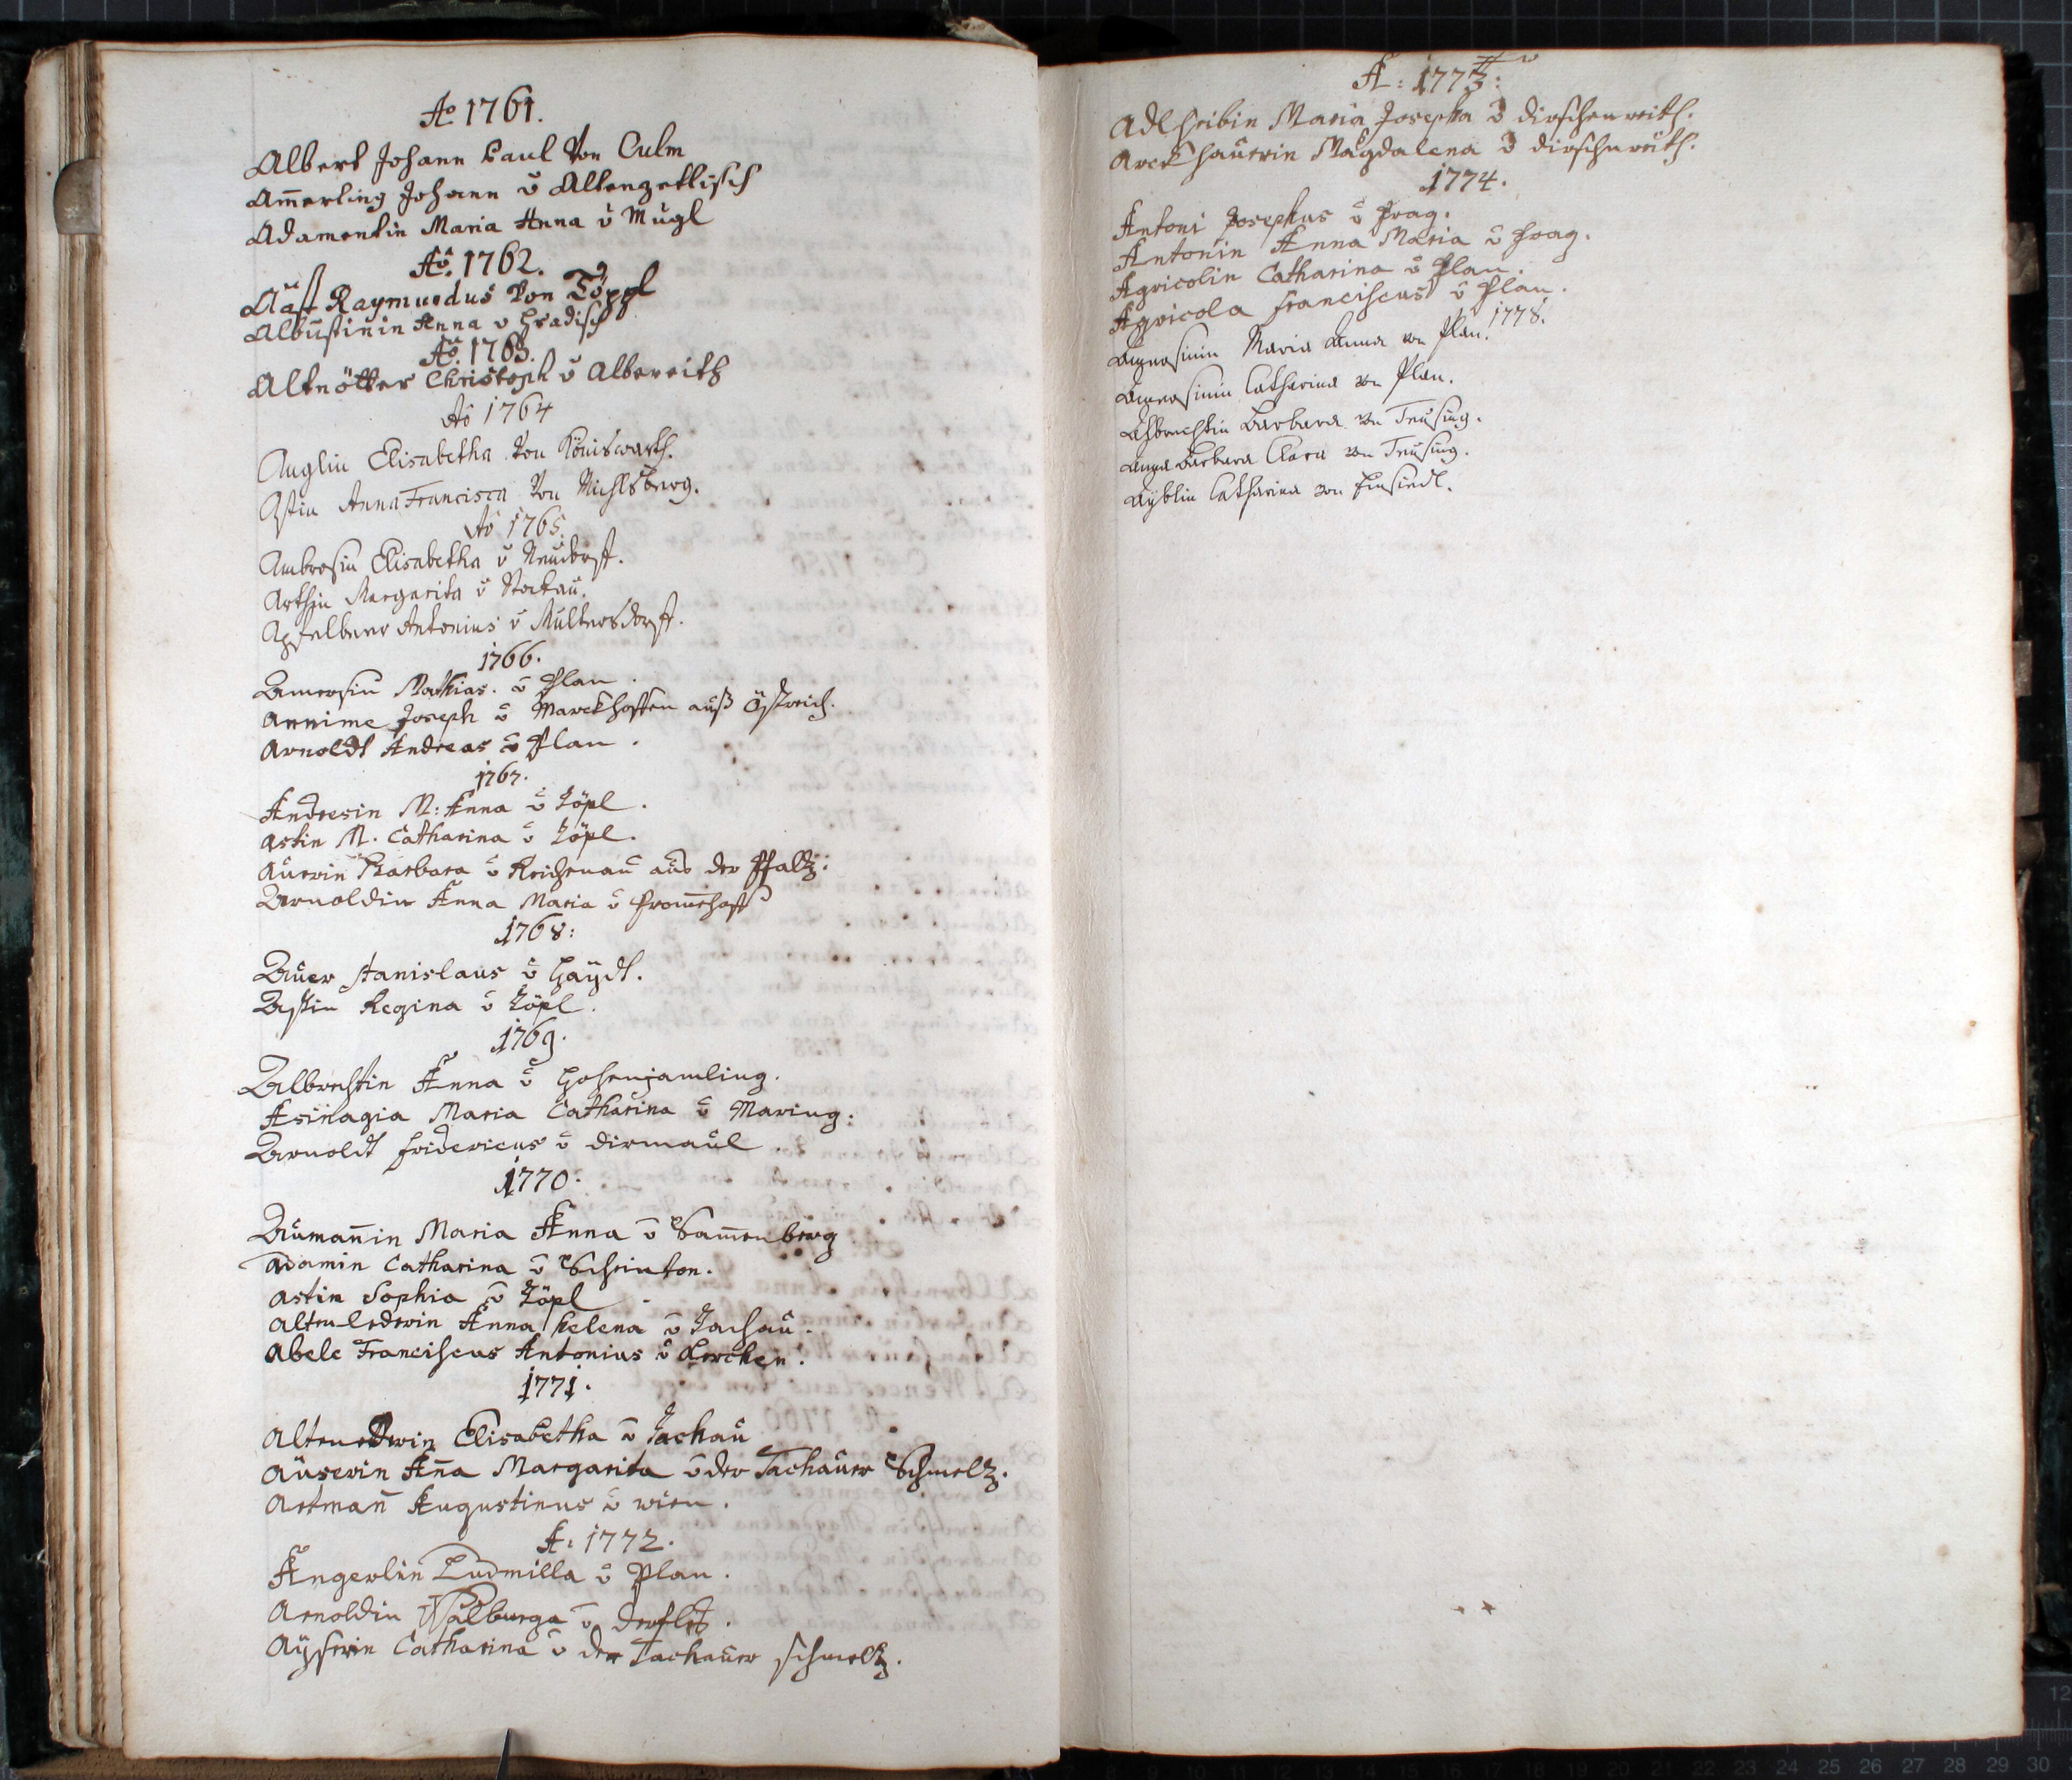 Ao 1761.
Albert Johann Paul Von Culm
Am̄erling Johann v̄ Altengettlisch
Adamentin Maria Anna v̄ Mugl
Ao. 1762.
Äast Raymundus Von Töppl
Albustinin Anna v Hradisch
Ao. 1763.
Altnötter Christoph v̄ Albereith
Ao 1764
Anglin Elisabetha Von Köniswarth.
Astin Anna Francisca Von Michlsberg.
Ao 1765.
Ambrosin Elisabetha v̄ Neudorf.
Arthin Margarita v̄ Stockau.
Apfelbeer Antonius v̄ Multersdorf.
1766.
Amersin Mathias. v̄ Plan.
Annime Joseph v̄ Marckhoffen auß Östreich.
Arnoldt Andreas v̄ Plan.
1767.
Andresin M: Anna v̄ Töpl.
Astin M. Catharina v̄ Töpl.
Auerin Barbara v̄ Reichenau aus der Pfaltz:
Arnoldin Anna Maria v̄ From̄ehoff
1768:
Auer Stanislaus v̄ Haydt.
Astin Regina v̄ Töpl.
1769.
Albrechtin Anna v̄ Hohenjamling.
Maria Catharina v̄ Maring:
Arnoldt Fridericus v̄ Dirmaul.
1770.
Auman̄in Maria Anna v̄ Bam̄enberg
Adamin Catharina v̄ Scheinton.
Astin Sophia v̄ Töpl.
Anna Helena v̄ Tachau.
Abele Franciscus Antonius v̄ Lerchen.
1771.
Elisabetha v̄ Tachau
Auserin An̄a Margarita v̄ der Tachauer Schmeltz.
Artman̄ Augustinus v̄ Wien.
A: 1772.
Angerlin Ludmilla v̄ Plan.
Arnoldin Walburga v̄ Dorfles.
Ayserin Catharina v̄ der Tachauer Schmeltz.
A: 1773:
Adlheibin Maria Josepha v Dirschenreith.
Arckhauerin Magdalena v Dirschnreith.
1774.
Antoni Josephus v̄ Prag.
Antonin Anna Maria v̄ Prag.
Agricolin Catharina v̄ Plan.
Agricola Franciscus v̄ Plan.
1778.
Maria Anna von Plan.
Catharina von Plan.
Barbara von Teusing.
Anna Barbara Clara von Teusing.
Ayblin Catharina von Einsiedl.